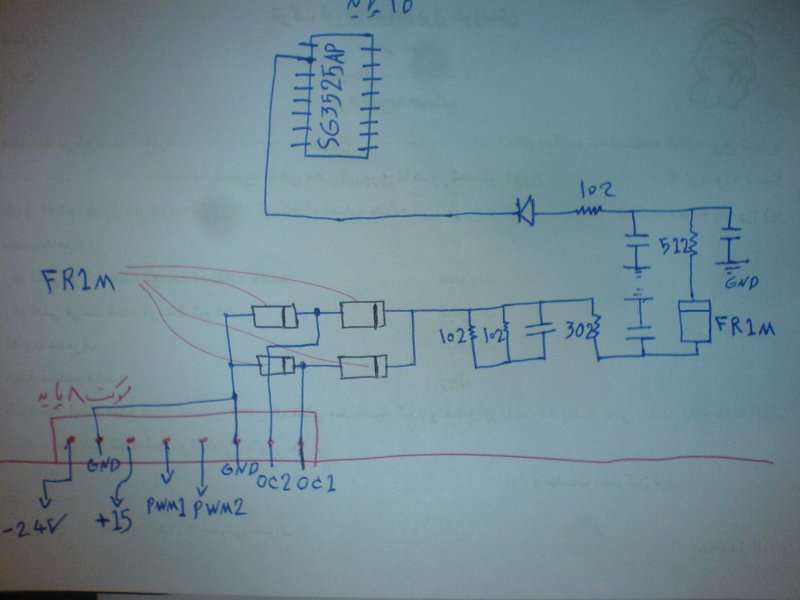 ۱۶ پایه
SG3525AP
102
512
GND
FR1M
FR1M
102
102
302
سوکت ۸ پایه
GND
GND
OC2
OC1
-24V
+15
PWM1
PWM2